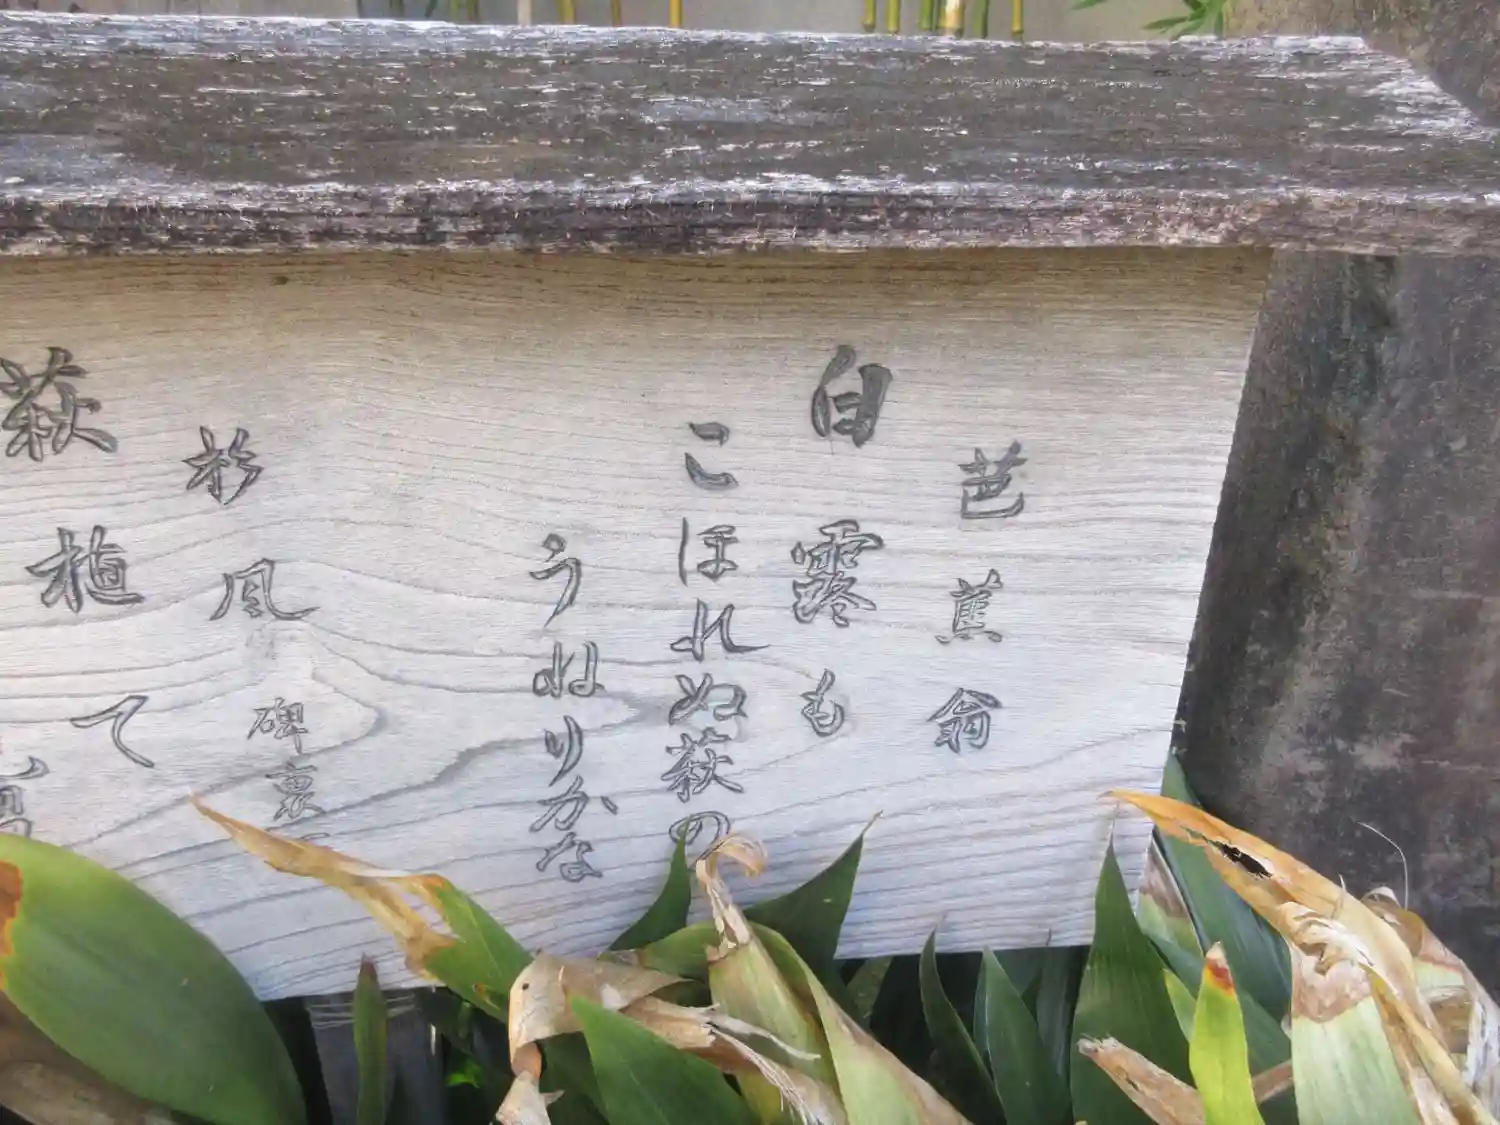 芭蕉翁
白露も
こほれぬ萩の
うねりかな
杉風 碑裏
萩植て